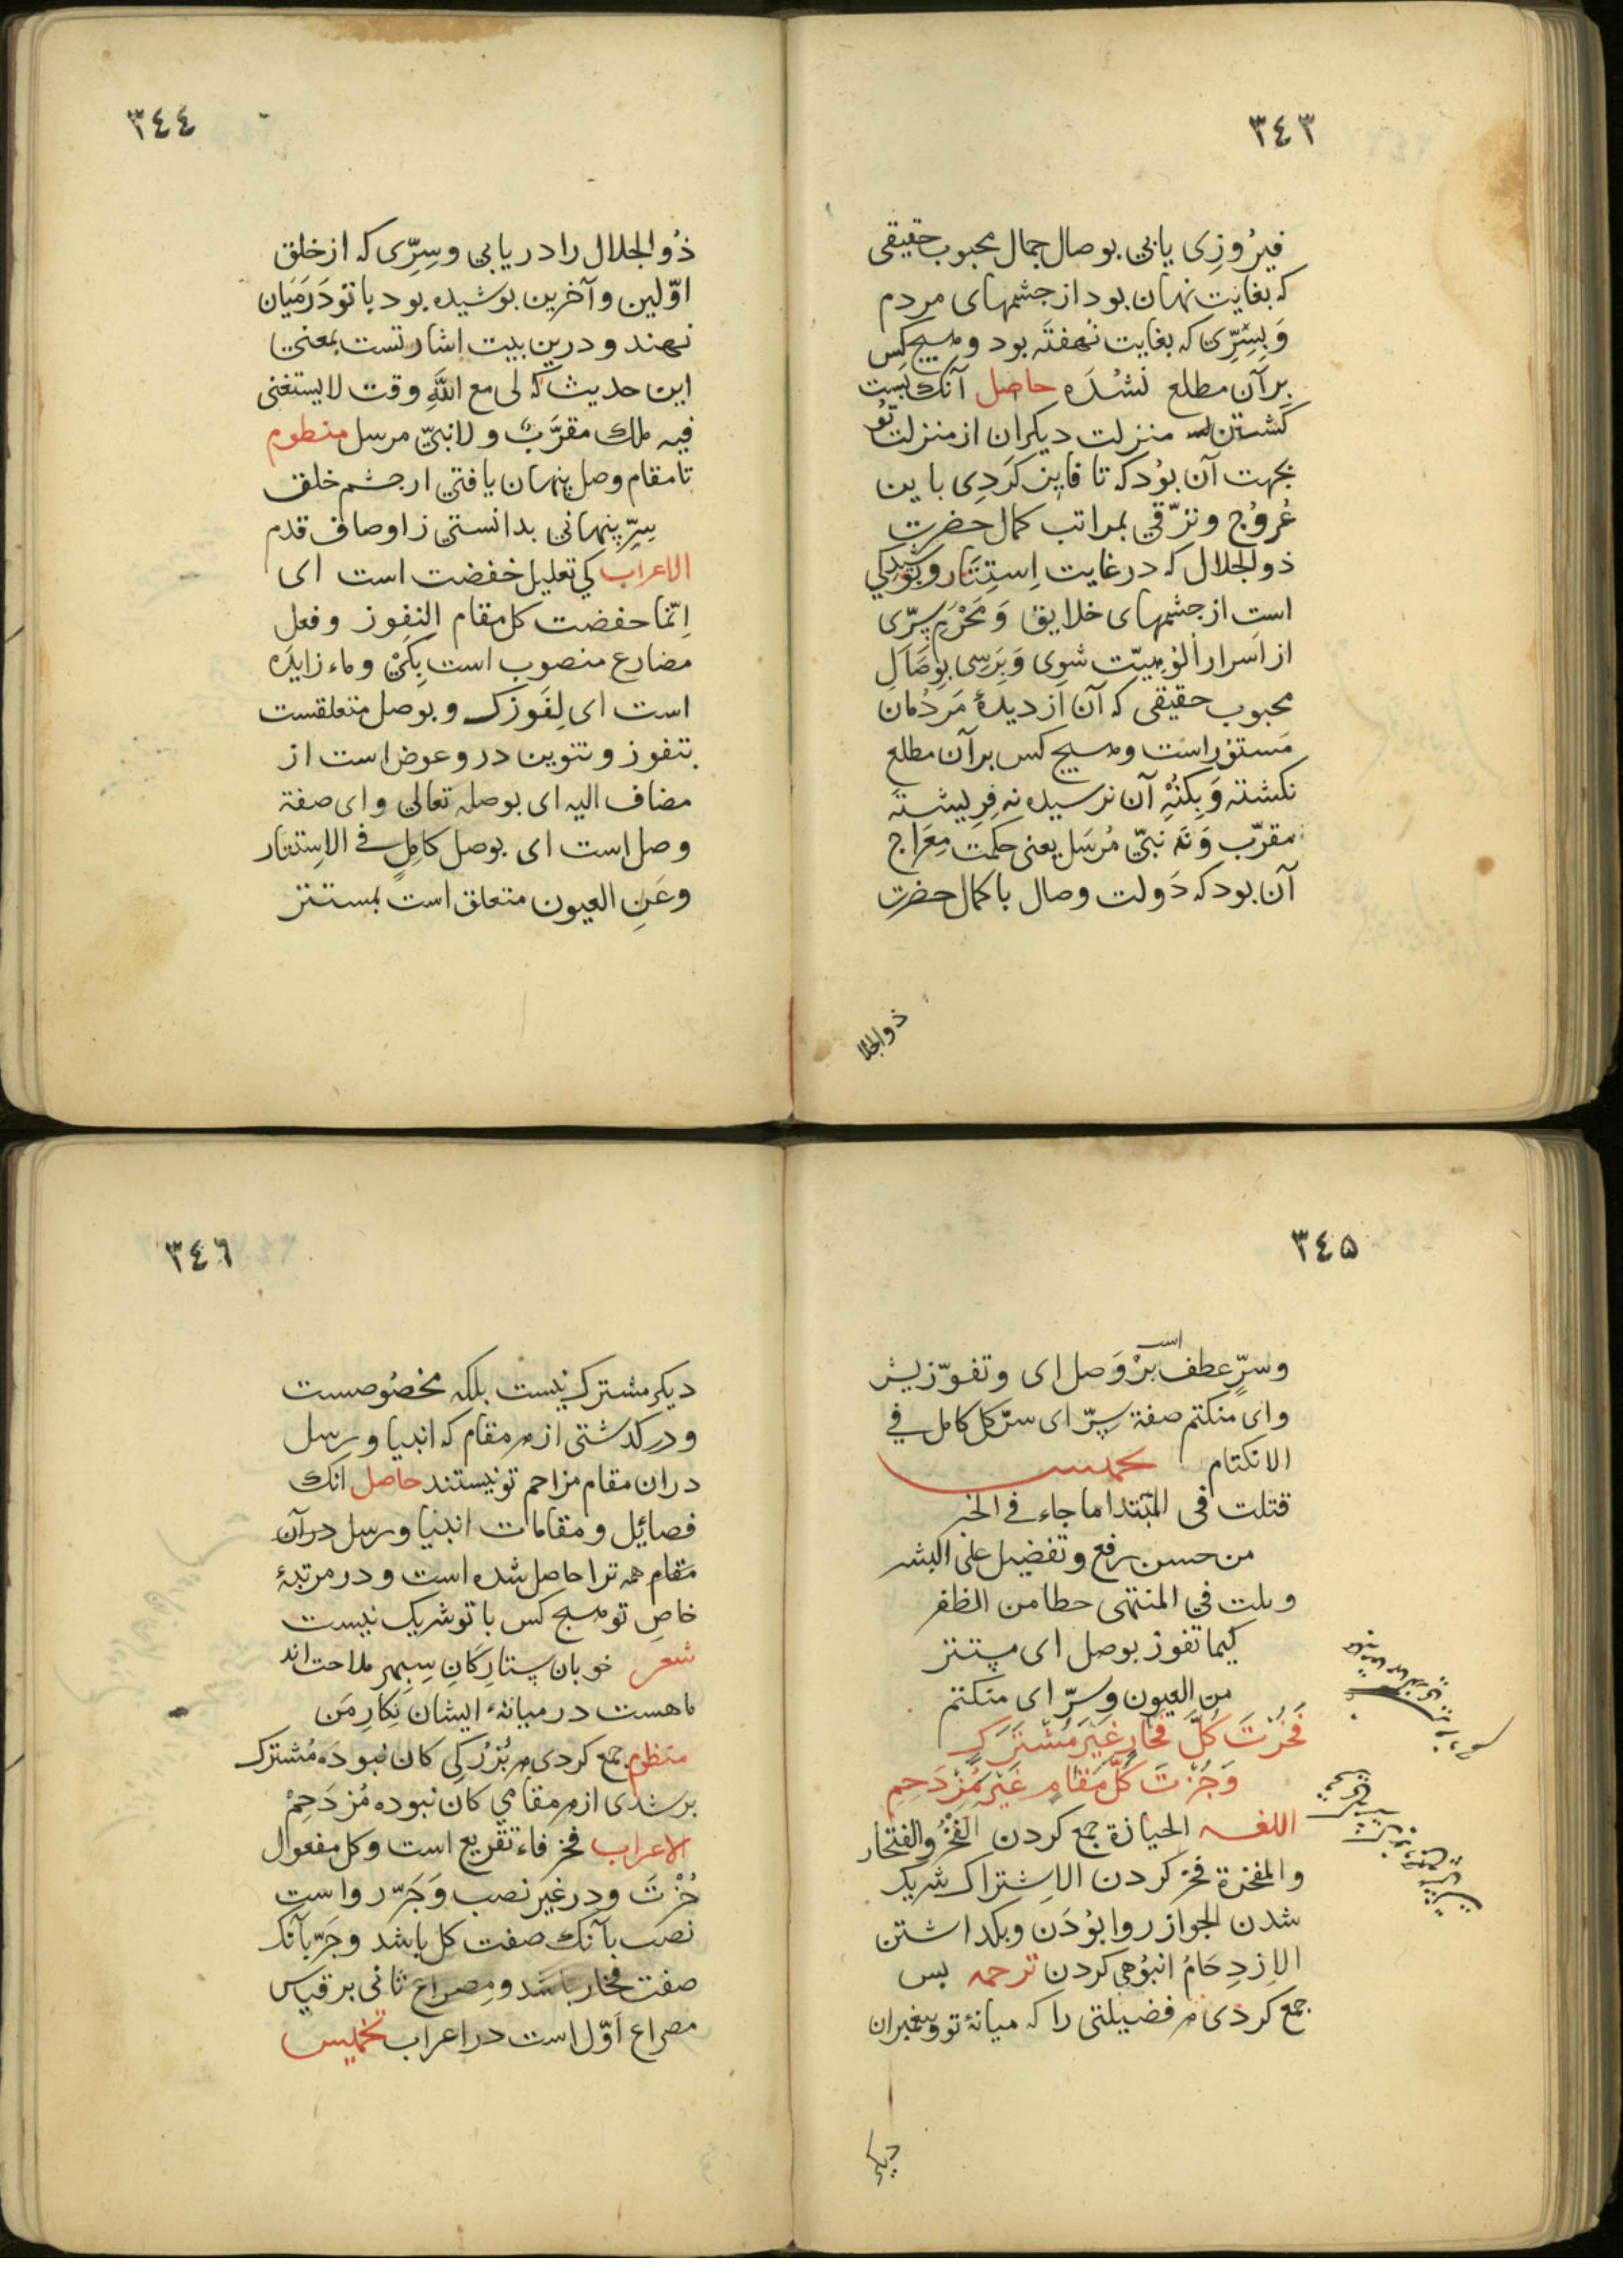 ٣٤٣
فیرُوزِی یابی بوصال جمال محبوب حقیقی
که بغایت نهان بود از جشمهای مردم
وَ بِسِرِّی که بغایت نهفتَه بود و هیچ کس
برآن مطلع نشُدَه حاصل آنک بَست
کشتن منزلت دیکران از منزلت تو
بجهت آن بوُد که تا فایز کَردِی باین
عُروُج و تَرقّی بمراتب کمال حضرت
ذو الجلال که در غایت اِستِتَار و بوُشیدکی
است از جشمهای خلایق وَ مَحْرَمِ سِرّی
از اسَرار الوُهیّت شوِی وَ بَرَسِی بِوِصَالِ
محبوب حقیقی که آن از دیدهٔ مَردُمان
مَستوُر است و هیچ کس برآن مطلع
نکشته وَ بِکُنْهِ آن نرسیده نه فِرِیشتَه
مقرّب وَ نَه نبیّ مُرسَل یعنی حکمت مِعَراج
آن بود که دَولت وصال با کمال حضرت
ذوالجلا
٣٤٤
ذُو الجلال را دریابی و سِرِّی که از خلق
اوّلین و آخرین بوشیده بود با تو دَرمَیان
نهند و درین بیت اشارتست بمعنی
این حدیث که لی مع اللّهِ وقت لا یستغنی
فیه ملك مقرَّبٌ و لا نبیّ مرسل منظوم
تا مقام وصل پنهان یافتی از جشم خلق
سِرِّ پنهانی بدانستی ز اوصاف قدم
الاعراب کی تعلیل خفضت است ای
اِنّما خفضت کل مقام النفوز و فعل
مضارع منصوب است بِکَیْ و ماء زایدَه
است ای لِفَوزک و بوصل متعلقست
بتفوز و تنوین درو عوض است از
مضاف الیه ای بوصله تعالی و ای صفة
وصل است ای بوصل کامِلٍ فی الاِستتار
وعَنِ العیون متعلق است بمستتر
٣٤٥
وسِرٍّ عطف است برْ وَصل ای و تفوز بسر
و ای منکتم صفة سِرّ ای سرّ کل کامل فی
الانکتام تخمیس
قتلت فی المبتدا ما جاء فی الخبر
من حسن رفع و تفضیل علی البشر
و نلت فی المنتهی حظا من الظفر
کیما تفوز بوصل ای مستتر
من العیون و سِرّ ای منکتم
فَحُزْتَ کُلَّ فَخَارٍ غَیْرَ مُشْتَرَكٍ
وَجُزْتَ کُلَّ مَقَامٍ غَیْرَ مُزْدَحِمِ
اللغة الحِیازة جمع کردن الفَخْرُ والفتخار
والمفخرة فخر کردن الاِشتراک شریک
شدن الجواز روا بوُدَن و بکداشتن
الاِزدِحَامُ انبُوهی کردن ترجمه بس
جمع کردی هر فضیلتی را که میانهٔ تو و پیغمبران
دیکر
٣٤٦
دیکر مشترک نیست بلکه مخصُوصست
و درکذشتی از هر مقام که انبیا و رسل
دران مقام مزاحم تو نیستند حاصل انک
فصائیل و مقامات انبیا و رسل درآن
مَقام همه ترا حاصل شده است و در مرتبهٔ
خاصِ تو هیچ کس با تو شریک نیست
شعر خوبان ستارکَانِ سِپِهر ملاحت اند
ماهست در میانهٔ ایشان نِکارِ مَن
منظوم جمع کردی هر بُزرُکی کان نبودَه مُشترک
برشدی از هر مقامی کان نبوده مُزدَحِمْ
الاعراب فحز فاء تَفریع است و کل مفعول
حُزْتَ و در غیَر نصب وَجَرّ رواست
نصَب بآنک صفت کل باشد و جَرّ بآنک
صفت فخار باشد و مِصراع ثانی بر قیاس
مصراع اَوّل است در اعراب تخمیس